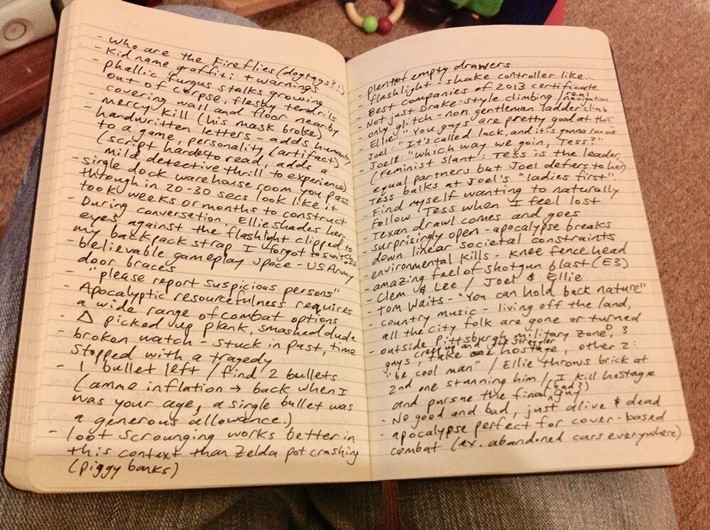 - Who are the Fireflies (dogtags?!)
- Kid name graffiti + warnings
- phallic fungus stalks growing
out of corpse, fleshy tendrils
covering wall and floor nearby
- mercy kill (his mask broke)
- handwritten letters - adds humanity
to a game, personality (artifact)
(script hard to read, adds a
mild detective thrill to experience)
- single dock warehouse room you pass
through in 20-30 secs look like it
took weeks or months to construct
- During conversation, Ellie shades her
eyes against the flashlight clipped to
my backpack strap I forgot to switch
- believable gameplay space - US Army
door braces
- "please report suspicious persons"
- Apocalyptic resourcefulness requires
a wide range of combat options
- Δ picked up plank, smashed dude
- broken watch - stuck in past, time
stopped with a tragedy
- 1 bullet left / find 2 bullets
(ammo inflation → back when I
was your age, a single bullet was
a generous allowance.)
- loot scrounging works better in
this context than Zelda pot crashing
(piggy banks)
- Plenty of empty drawers
- flashlight (shake controller like..
- Best companies of 2013 certificate
- Not just Drake-style climbing / real navigation
- only glitch - non gentleman ladder climb
- Ellie: "You guys are pretty good at this."
Joel: "It's called luck, and it's gonna run out
- Joel: "which way we goin, Tess?"
(feminist slant: Tess is the leader,
equal partners but Joel defers to her)
Tess balks at Joel's "ladies first"
- Find myself wanting to naturally
follow Tess when I feel lost
- Texan drawl comes and goes
- surprisingly open - apocalypse breaks
down linear societal constraints
- environmental kills - knee fence head
- amazing feel of shotgun blast (E3)
- Clem & Lee / Joel & Ellie
- Tom Waits - "You can hold back nature"
- country music - living off the land,
all the city folk are gone or turned
- outside Pittsburgh military zone, 3
guys, take one hostage, other 2:
"be cool man" / Ellie throws brick at
2nd one stunning him / I kill hostage
and pursue the final guy
- No good and bad, just alive & dead
- apocalypse perfect for cover-based
combat (ex. abandoned cars everywhere)